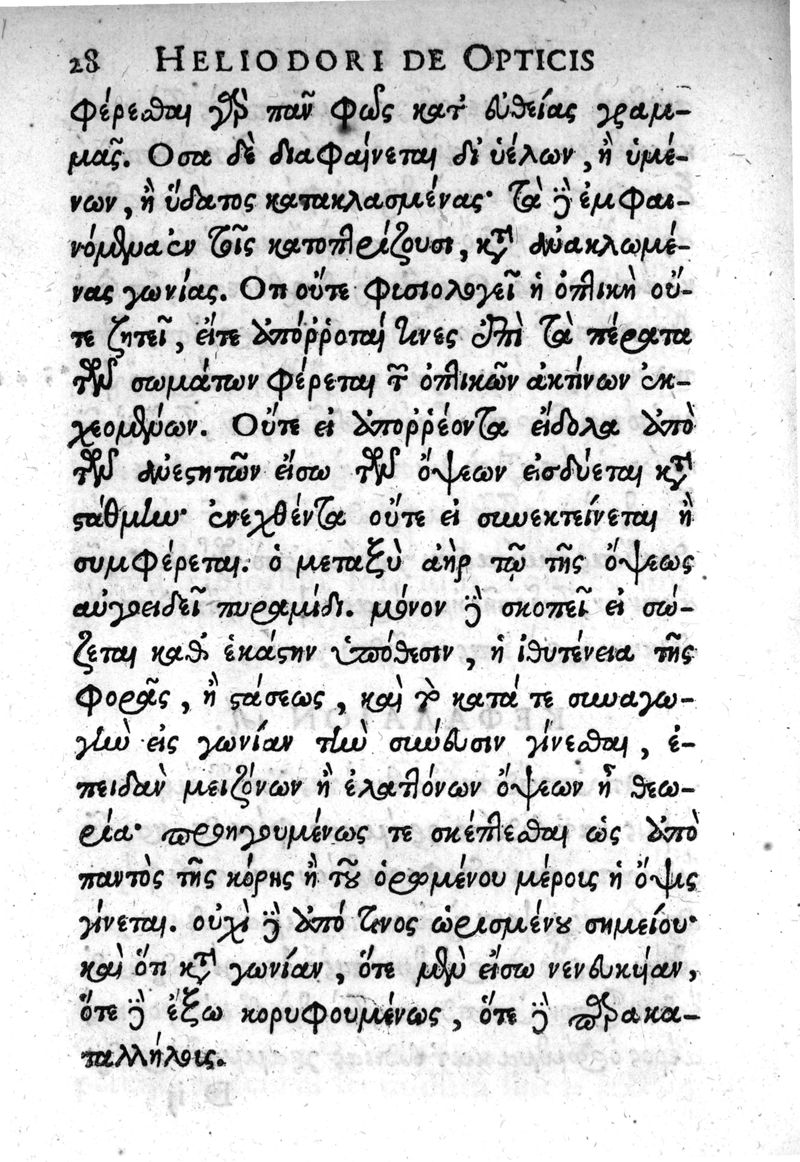 28 HELIODORI DE OPTICIS
φέρεσθαι γὰρ πᾶν φῶς κατ᾽ εὐθείας γραμ-
μάς. Οσα δὲ διαφαίνεται δι᾽ ὑέλων, ἢ ὑμέ-
νων, ἢ ὕδατος κατακλασμένας· τὰ δὲ ἐμφαι-
νόμενα ἐν τοῖς κατοπτρίζουσι, κατὰ ἀνακλωμέ-
νας γωνίας. Οτι οὔτε φισιολογεῖ ἡ ὀπτικὴ οὔ-
τε ζητεῖ, εἴτε ἀπόρροιαί τινες ἐπὶ τὰ πέρατα
τῶν σωμάτων φέρεται τῶν ὀπτικῶν ἀκτίνων ἐκ-
χεομένων. Οὔτε εἰ ἀπορρέοντα εἴδολα ἀπὸ
τῶν ἀνεστητῶν εἴσω τῶν ὄψεων εἰσδύεται κατὰ
στάθμην· ἐνεχθέντα οὔτε εἰ συνεκτείνεται ἢ
συμφέρεται. ὁ μεταξὺ ἀὴρ τῷ τῆς ὄψεως
αὐγοειδεῖ πυραμίδι. μόνον δὲ σκοπεῖ εἰ σώ-
ζεται καθ᾽ ἑκάστην ὑπόθεσιν, ἡ ἰθυτένεια τῆς
φορᾶς, ἢ στάσεως, καὶ τὸ κατά τε συναγω-
γὴν εἰς γωνίαν τὴν σύνευσιν γίνεσθαι, ἐ-
πειδὰν μειζόνων ἢ ἐλαττόνων ὄψεων ᾖ θεω-
ρία· προηγουμένως τε σκέπτεσθαι ὡς ἀπὸ
παντὸς τῆς κόρης ἢ τοῦ ὁρωμένου μέροις ἡ ὄψις
γίνεται. οὐχὶ δὲ ἀπό τινος ὡρισμένου σημείου·
καὶ ὅτι κατὰ γωνίαν, ὅτε μὲν εἴσω νενευκυῖαν,
ὅτε δὲ ἔξω κορυφουμένως, ὅτε δὲ παρακα-
ταλλήλοις.